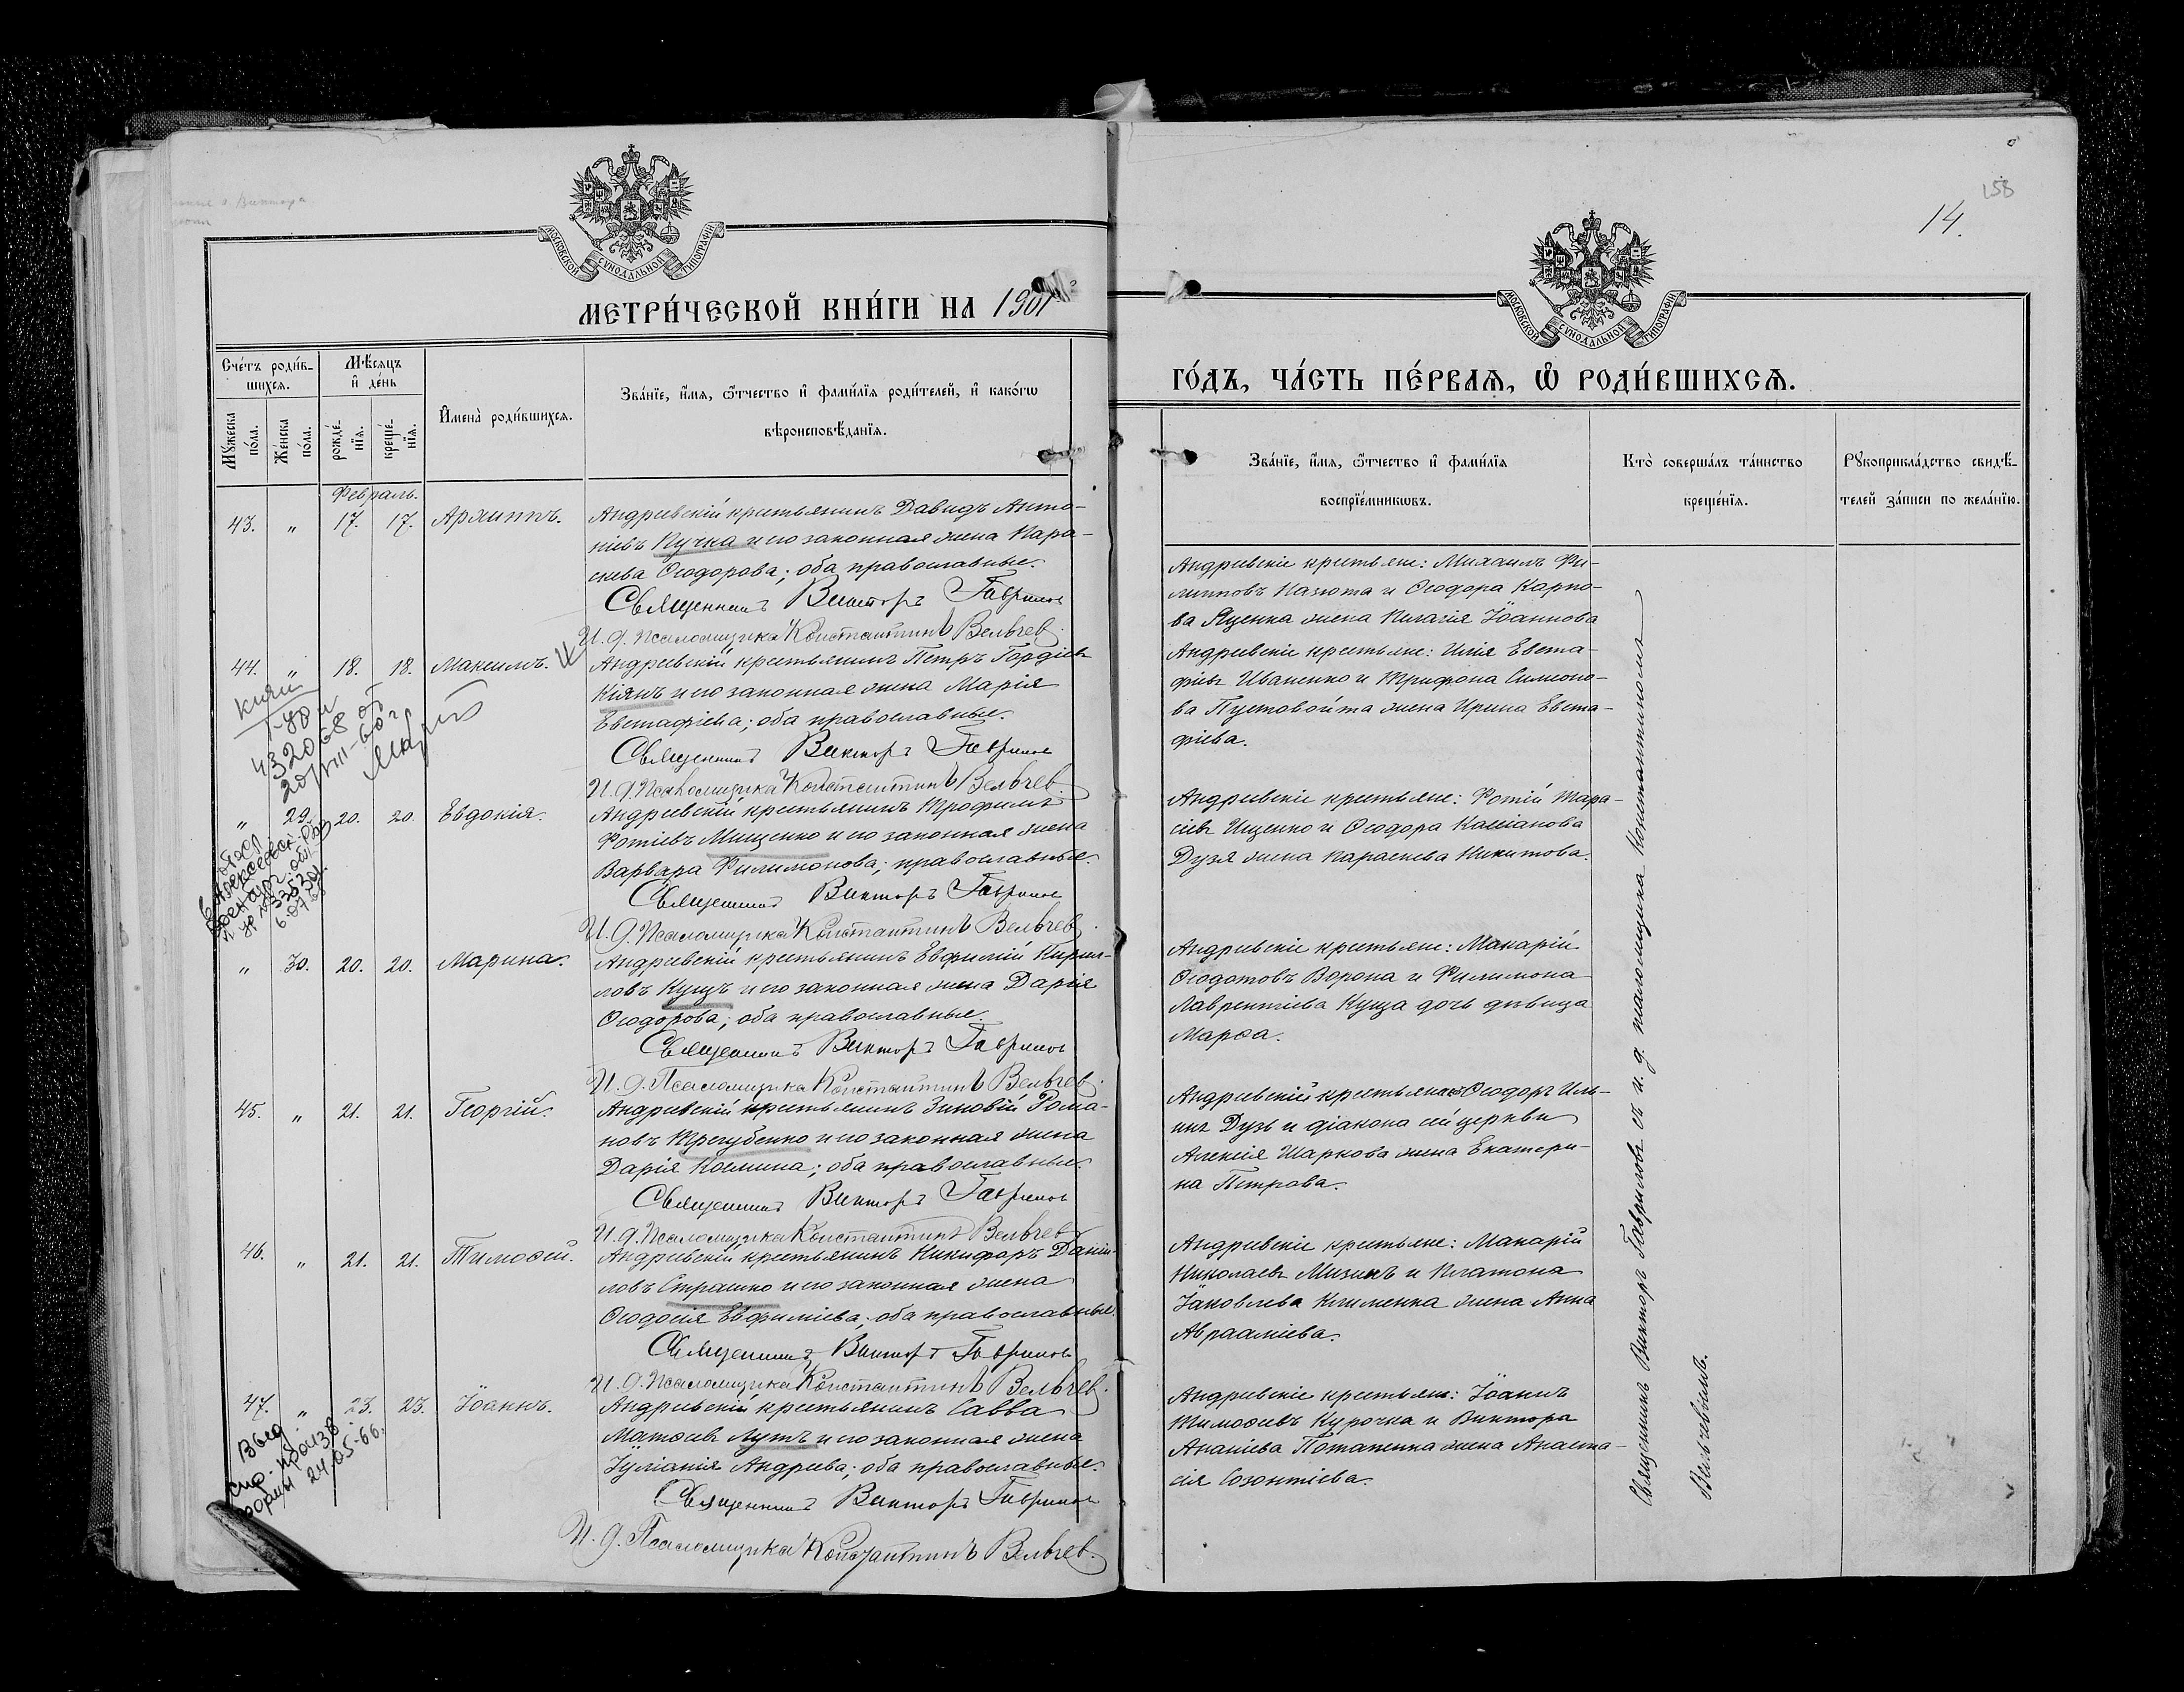 МОСКОВСКОЙ СѴНОДАЛЬНОЙ ТИПОГРАФІИ
МЕТРИ́ЧЕСКОЙ КНИ́ГИ НА 1901
Сче́тъ роди́в-
шихсѧ.
Мѣ́сѧцъ
и҆ де́нь
Мꙋ́жеска
по́ла.
Же́нска
по́ла.
рожде́-
нїѧ.
креще́-
нїѧ.
И҆мена̀ роди́вшихсѧ.
Зва́нїе, и҆́мѧ, ѻ҆́тчество и҆ фами́лїѧ роди́телей, и҆ како́гѡ
вѣроисповѣ́данїѧ.
Февраль.
43. " 17. 17. Архиппъ. Андреевскій крестьянинъ Давидъ Анто-
ніевъ Пучка и его законная жена Пара-
скева Ѳеодорова; оба православные.
Священникъ Викторъ Гавриловъ
И. д. Псаломщика Константинъ Вельчев.
44. " 18. 18. Максимъ. Андреевскій крестьянинъ Петръ Гордіевъ
Кіянъ и его законная жена Марія
Евстафіева; оба православные.
Священникъ Викторъ Гавриловъ
И. д. Псаломщика Константинъ Вельчев.
" 29. 20. 20. Евдокія. Андреевскій крестьянинъ Трофимъ
Фотіевъ Мищенко и его законная жена
Варвара Филимонова; православные.
Священникъ Викторъ Гавриловъ
И. д. Псаломщика Константинъ Вельчев.
" 30. 20. 20. Марина. Андреевскій крестьянинъ Евфимій Кирил-
ловъ Кущъ и его законная жена Дарія
Ѳеодорова; оба православные.
Священникъ Викторъ Гавриловъ
И. д. Псаломщика Константинъ Вельчев.
45. " 21. 21. Георгій. Андреевскій крестьянинъ Зиновій Рома-
новъ Трегубенко и его законная жена
Дарія Космина; оба православные.
Священникъ Викторъ Гавриловъ
И. д. Псаломщика Константинъ Вельчев
46. " 21. 21. Тимоѳей. Андреевскій крестьянинъ Никифоръ Даніи-
ловъ Страшко и его законная жена
Ѳеодосія Евфиміева; оба православные.
Священникъ Викторъ Гавриловъ
И. д. Псаломщика Константинъ Вельчев.
47. " 23. 23. Іоаннъ. Андреевскій крестьянинъ Савва
Матѳеевъ Лутъ и его законная жена
Іуліанія Андреева; оба православные.
Священникъ Викторъ Гавриловъ
И. д. Псаломщика Константинъ Вельчев.
Киян
432068 от
20/VIII-60 г
Выд
24.05.66.
158
14.
МОСКОВСКОЙ СѴНОДАЛЬНОЙ ТИПОГРАФІИ
ГО́ДЪ, ЧА́СТЬ ПЕ́РВАѦ, Ѡ҆ РОДИ́ВШИХСѦ.
Зва́нїе, и҆́мѧ, ѻ҆́тчество и҆ фами́лїѧ
воспрїе́мникѡвъ.
Кто̀ соверша́лъ та́инство
креще́нїѧ.
Рꙋкоприкла́дство свидѣ́-
телей за́писи по жела́нїю.
Андреевскіе крестьяне: Михаилъ Фи-
липповъ Казюта и Ѳеодора Карпо-
ва Яценка жена Пелагія Іоаннова
Андреевскіе крестьяне: Илія Евста-
фіевъ Иваненко и Трифона Симеоно-
ва Пустовойта жена Ирина Евста-
фіева.
Андреевскіе крестьяне: Фотій Тара-
сіевъ Ищенко и Ѳеодора Кассіанова
Дузя жена Параскева Никитова.
Андреевскіе крестьяне: Макарій
Ѳеодотовъ Ворона и Филимона
Лаврентіева Куща дочь дѣвица
Марѳа.
Андреевскій крестьянинъ Ѳеодоръ Иль-
инъ Дузь и діакона сей церкви
Алексія Шаркова жена Екатери-
на Петрова.
Андреевскіе крестьяне: Макарій
Николаевъ Мизинъ и Платона
Іаковлева Клименка жена Анна
Авраамiева.
Андреевскіе крестьяне: Іоаннъ
Тимоѳеевъ Курочка и Виктора
Ананіева Потапенка жена Анаста-
сія Созонтіева.
Священникъ Викторъ Гавриловъ съ и. д. псаломщика Константиномъ
Вельчевымъ.